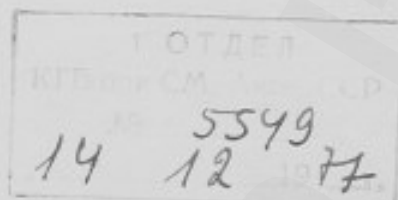 1 ОТДЕЛ
КГБ при СМ ССР
№ 5549
14 12 1977